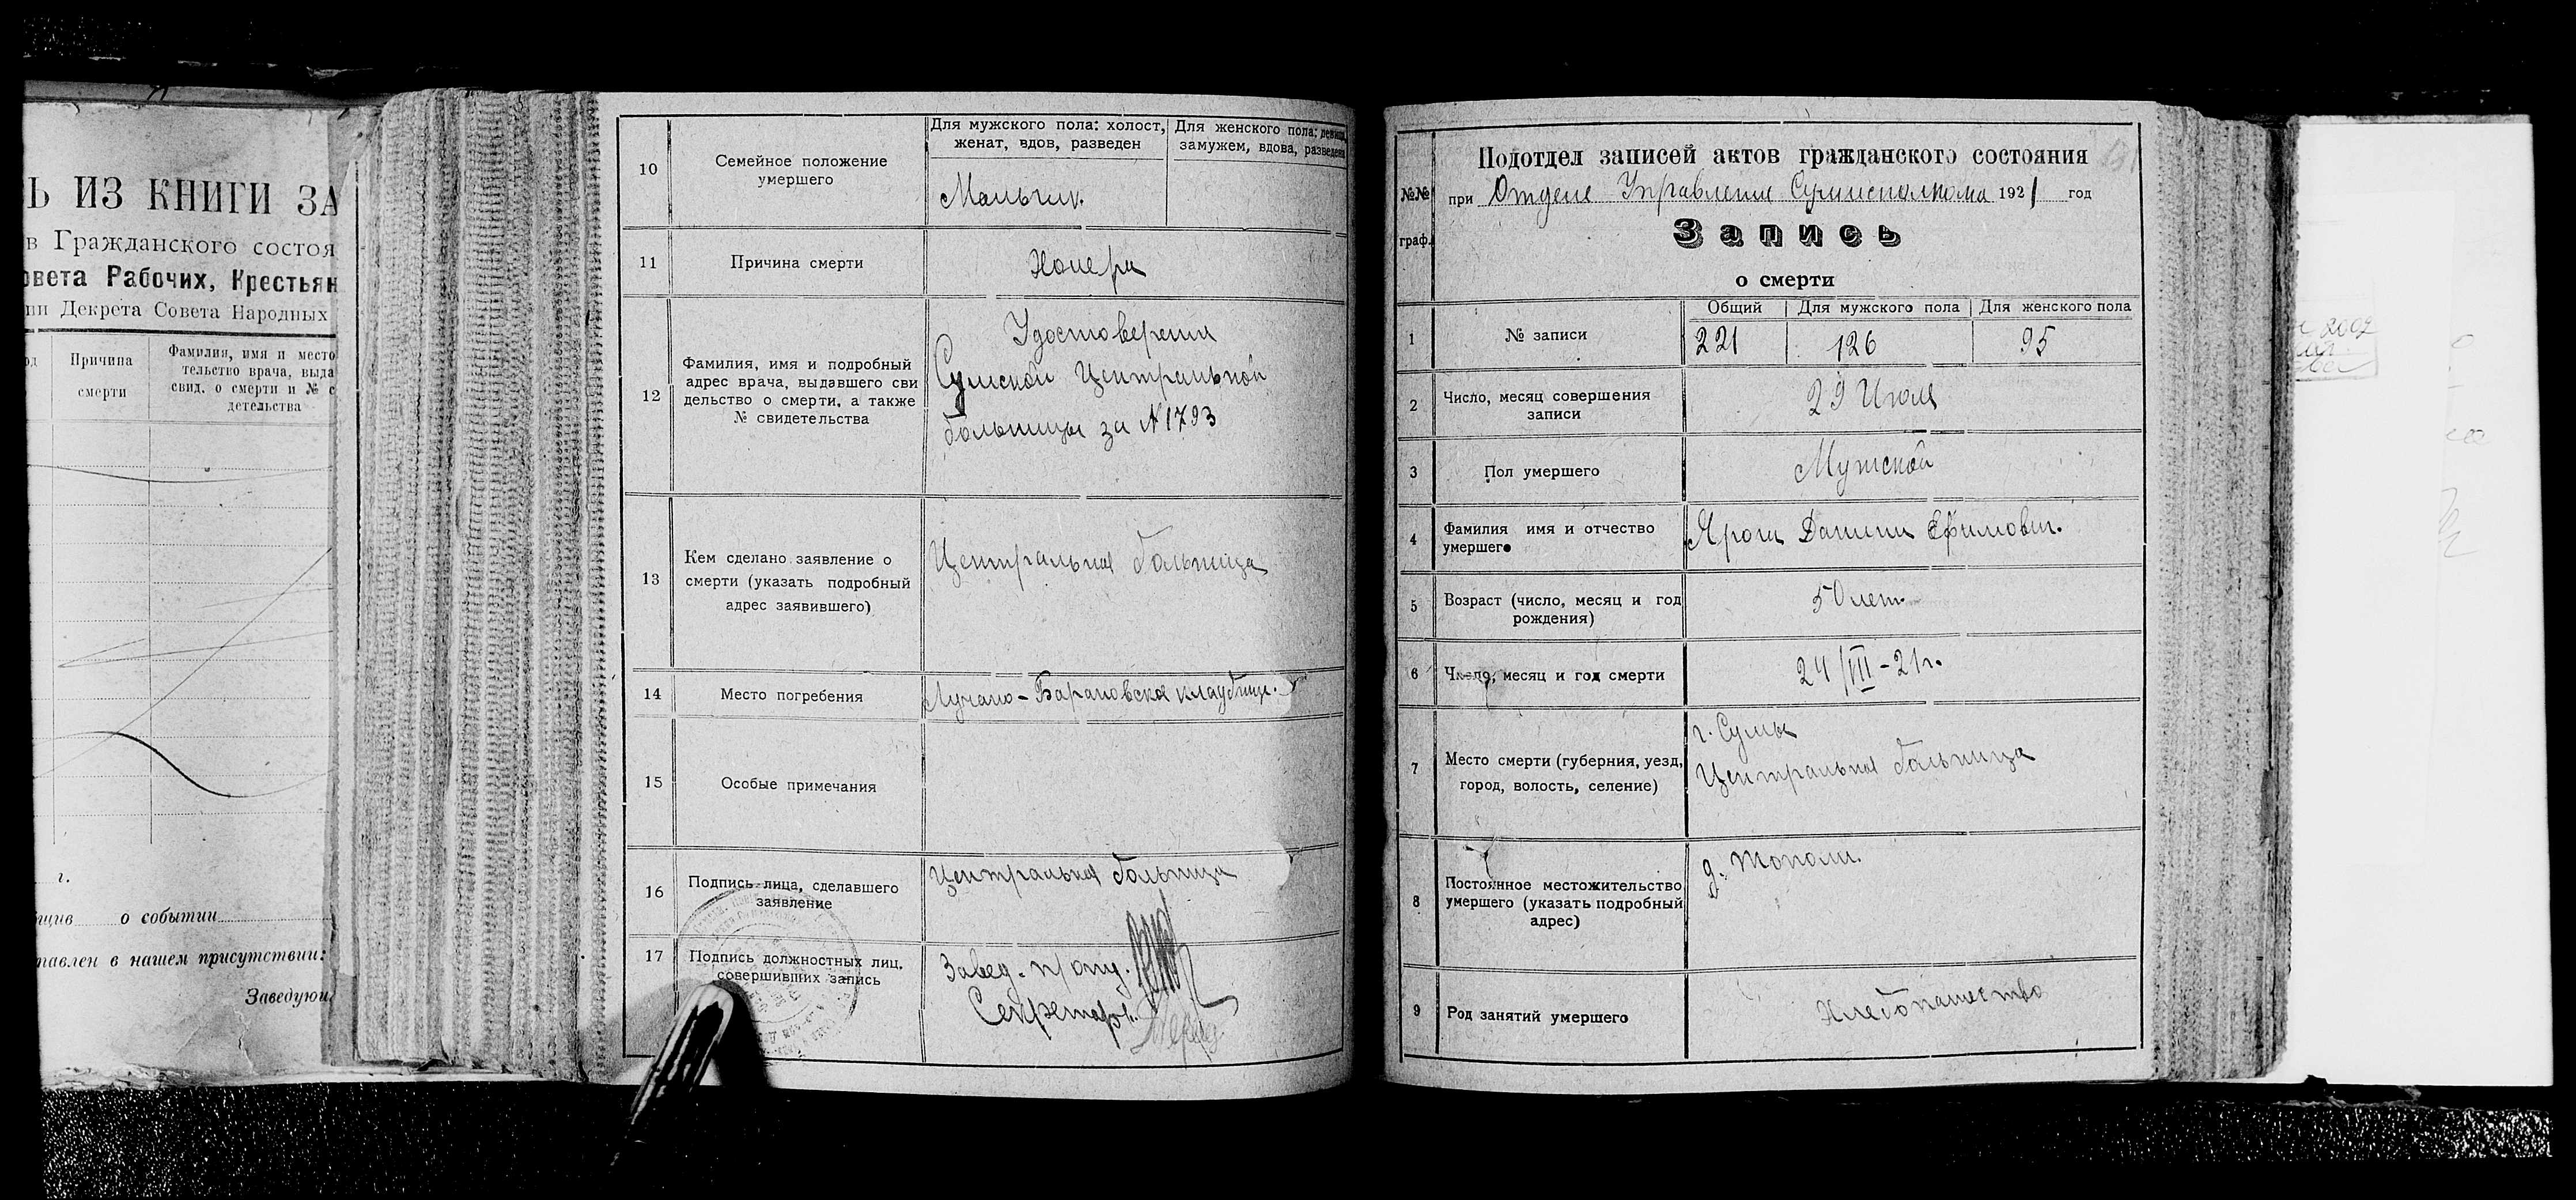 Ь ИЗ КНИГИ ЗА
в Гражданского состоя
овета Рабочих, Крестьян
ии Декрета Совета Народных
од
Причина
смерти
Фамилия, имя и место
тельство врача, выда
свид. о смерти и № с
детельства
г.
бщив о событии
тавлен в нашем присутствии:
Заведую
10
Семейное положение
умершего
Для мужского пола: холост,
женат, вдов, разведен
Для женского пола: девица,
замужем, вдова, разведена
Мальчик.
11
Причина смерти
Холера
12
Фамилия, имя и подробный
адрес врача, выдавшего сви
дельство о смерти, а также
№ свидетельства
Удостоверения
Сумской Центральной
больницы за № 1793
13
Кем сделано заявление о
смерти (указать подробный
адрес заявившего)
Центральная больница
14
Место погребения
Лучано-Барановское кладбище.
15
Особые примечания
16
Подпись лица, сделавшего
заявление
Центральная больница
17
Подпись должностных лиц,
совершивших запись
Завед. п/отд.
Секретарь
№№
граф.
Подотдел записей актов гражданского состояния
при Отделе Управления Сумисполкома 1921 год
Запись
о смерти
1
№ записи
Общий
Для мужского пола
Для женского пола
221
126
95
2
Число, месяц совершения
записи
29 Июля
3
Пол умершего
Мужской
4
Фамилия имя и отчество
умершего
Ярош Даниил Ефимович.
5
Возраст (число, месяц и год
рождения)
50 лет.
6
Число, месяц и год смерти
24/VII-21г.
7
Место смерти (губерния, уезд,
город, волость, селение)
г. Сумы
Центральная больница
8
Постоянное местожительство
умершего (указать подробный
адрес)
д. Тополи.
9
Род занятий умершего
Хлебопашество